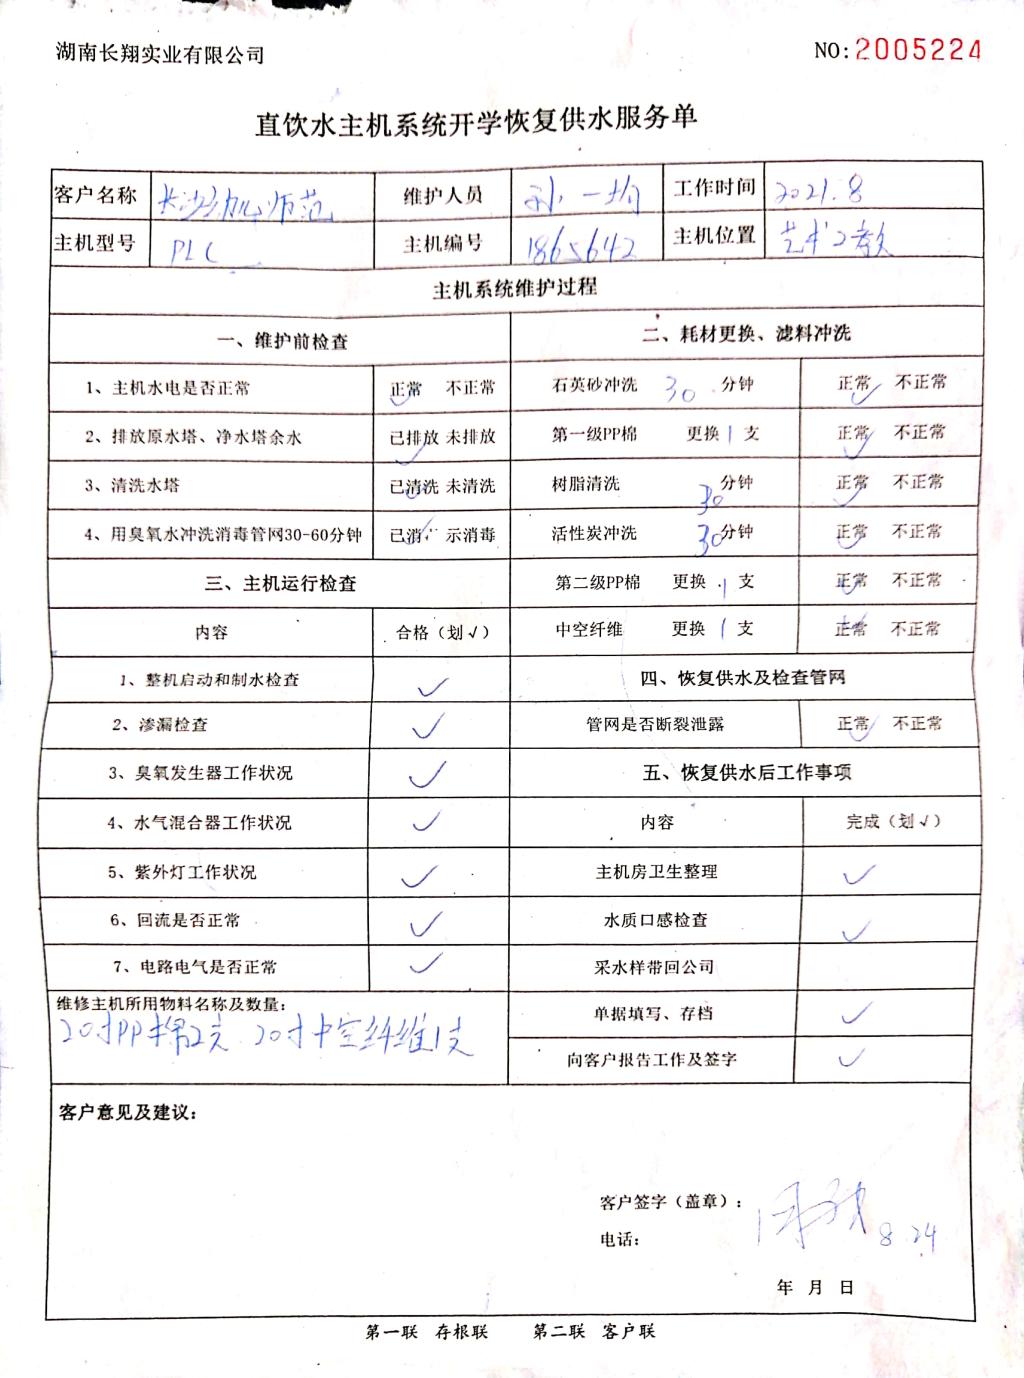 湖南长翔实业有限公司
NO:2005224
直饮水主机系统开学恢复供水服务单
客户名称 长沙幼师范 维护人员 孙一均 工作时间 2021.8
主机型号 PLC 主机编号 1865642 主机位置 艺术2教
主机系统维护过程
一、维护前检查 二、耗材更换、滤料冲洗
1、主机水电是否正常 正常 ✓ 不正常 石英砂冲洗 30 分钟 正常 ✓ 不正常
2、排放原水塔、净水塔余水 已排放 ✓ 未排放 第一级PP棉 更换 1 支 正常 ✓ 不正常
3、清洗水塔 已清洗 ✓ 未清洗 树脂清洗 30 分钟 正常 ✓ 不正常
4、用臭氧水冲洗消毒管网30-60分钟 已消 ✓ 示消毒 活性炭冲洗 30 分钟 正常 ✓ 不正常
三、主机运行检查 第二级PP棉 更换 1 支 正常 ✓ 不正常
内容 合格（划√） 中空纤维 更换 1 支 正常 ✓ 不正常
1、整机启动和制水检查 ✓ 四、恢复供水及检查管网
2、渗漏检查 ✓ 管网是否断裂泄露 正常 ✓ 不正常
3、臭氧发生器工作状况 ✓ 五、恢复供水后工作事项
4、水气混合器工作状况 ✓ 内容 完成（划√）
5、紫外灯工作状况 ✓ 主机房卫生整理 ✓
6、回流是否正常 ✓ 水质口感检查 ✓
7、电路电气是否正常 ✓ 采水样带回公司
维修主机所用物料名称及数量： 单据填写、存档 ✓
20寸PP棉2支 20寸中空纤维1支
向客户报告工作及签字 ✓
客户意见及建议：
客户签字（盖章）：
电话： 8.24
年 月 日
第一联 存根联 第二联 客户联